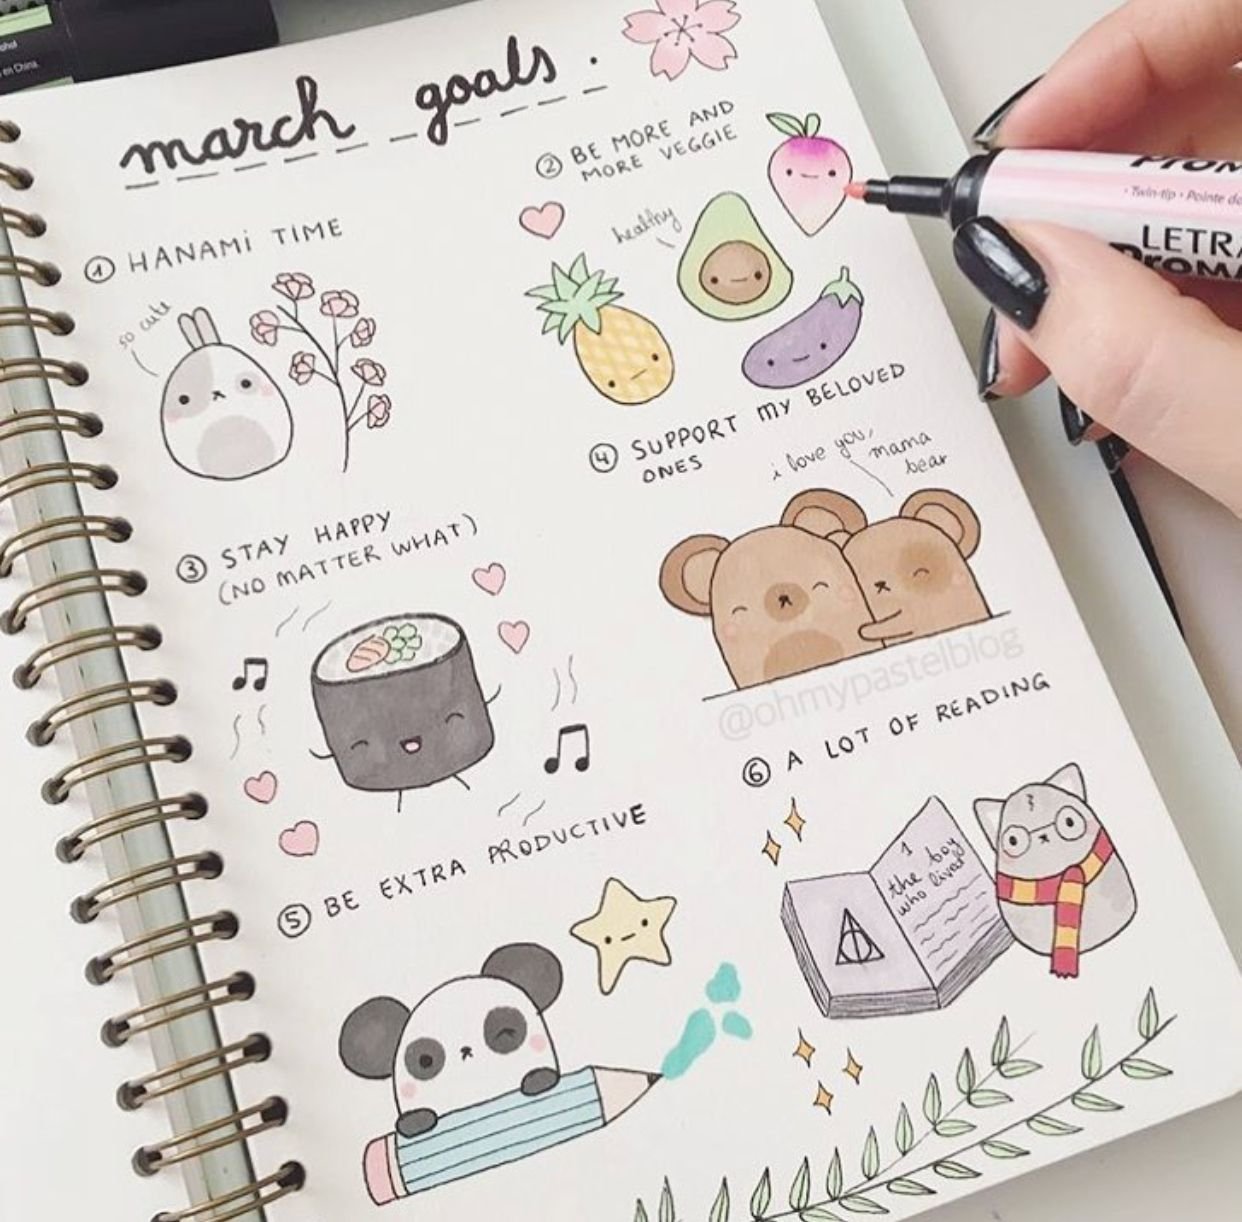 march goals.
① HANAMi TIME
so cute
② BE MORE AND
MORE VEGGIE
healthy
③ STAY HAPPY
(NO MATTER WHAT)
④ SUPPORT MY BELOVED
ONES
i love you,
mama
bear
@ohmypastelblog
⑤ BE EXTRA PRODUCTIVE
⑥ A LOT OF READING
1
the boy
who lived
Twin-tip • Pointe
LETRA